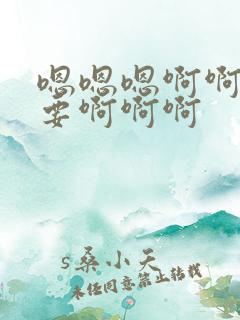 嗯嗯嗯啊啊
要啊啊啊
s桑小天
未经同意禁止转载